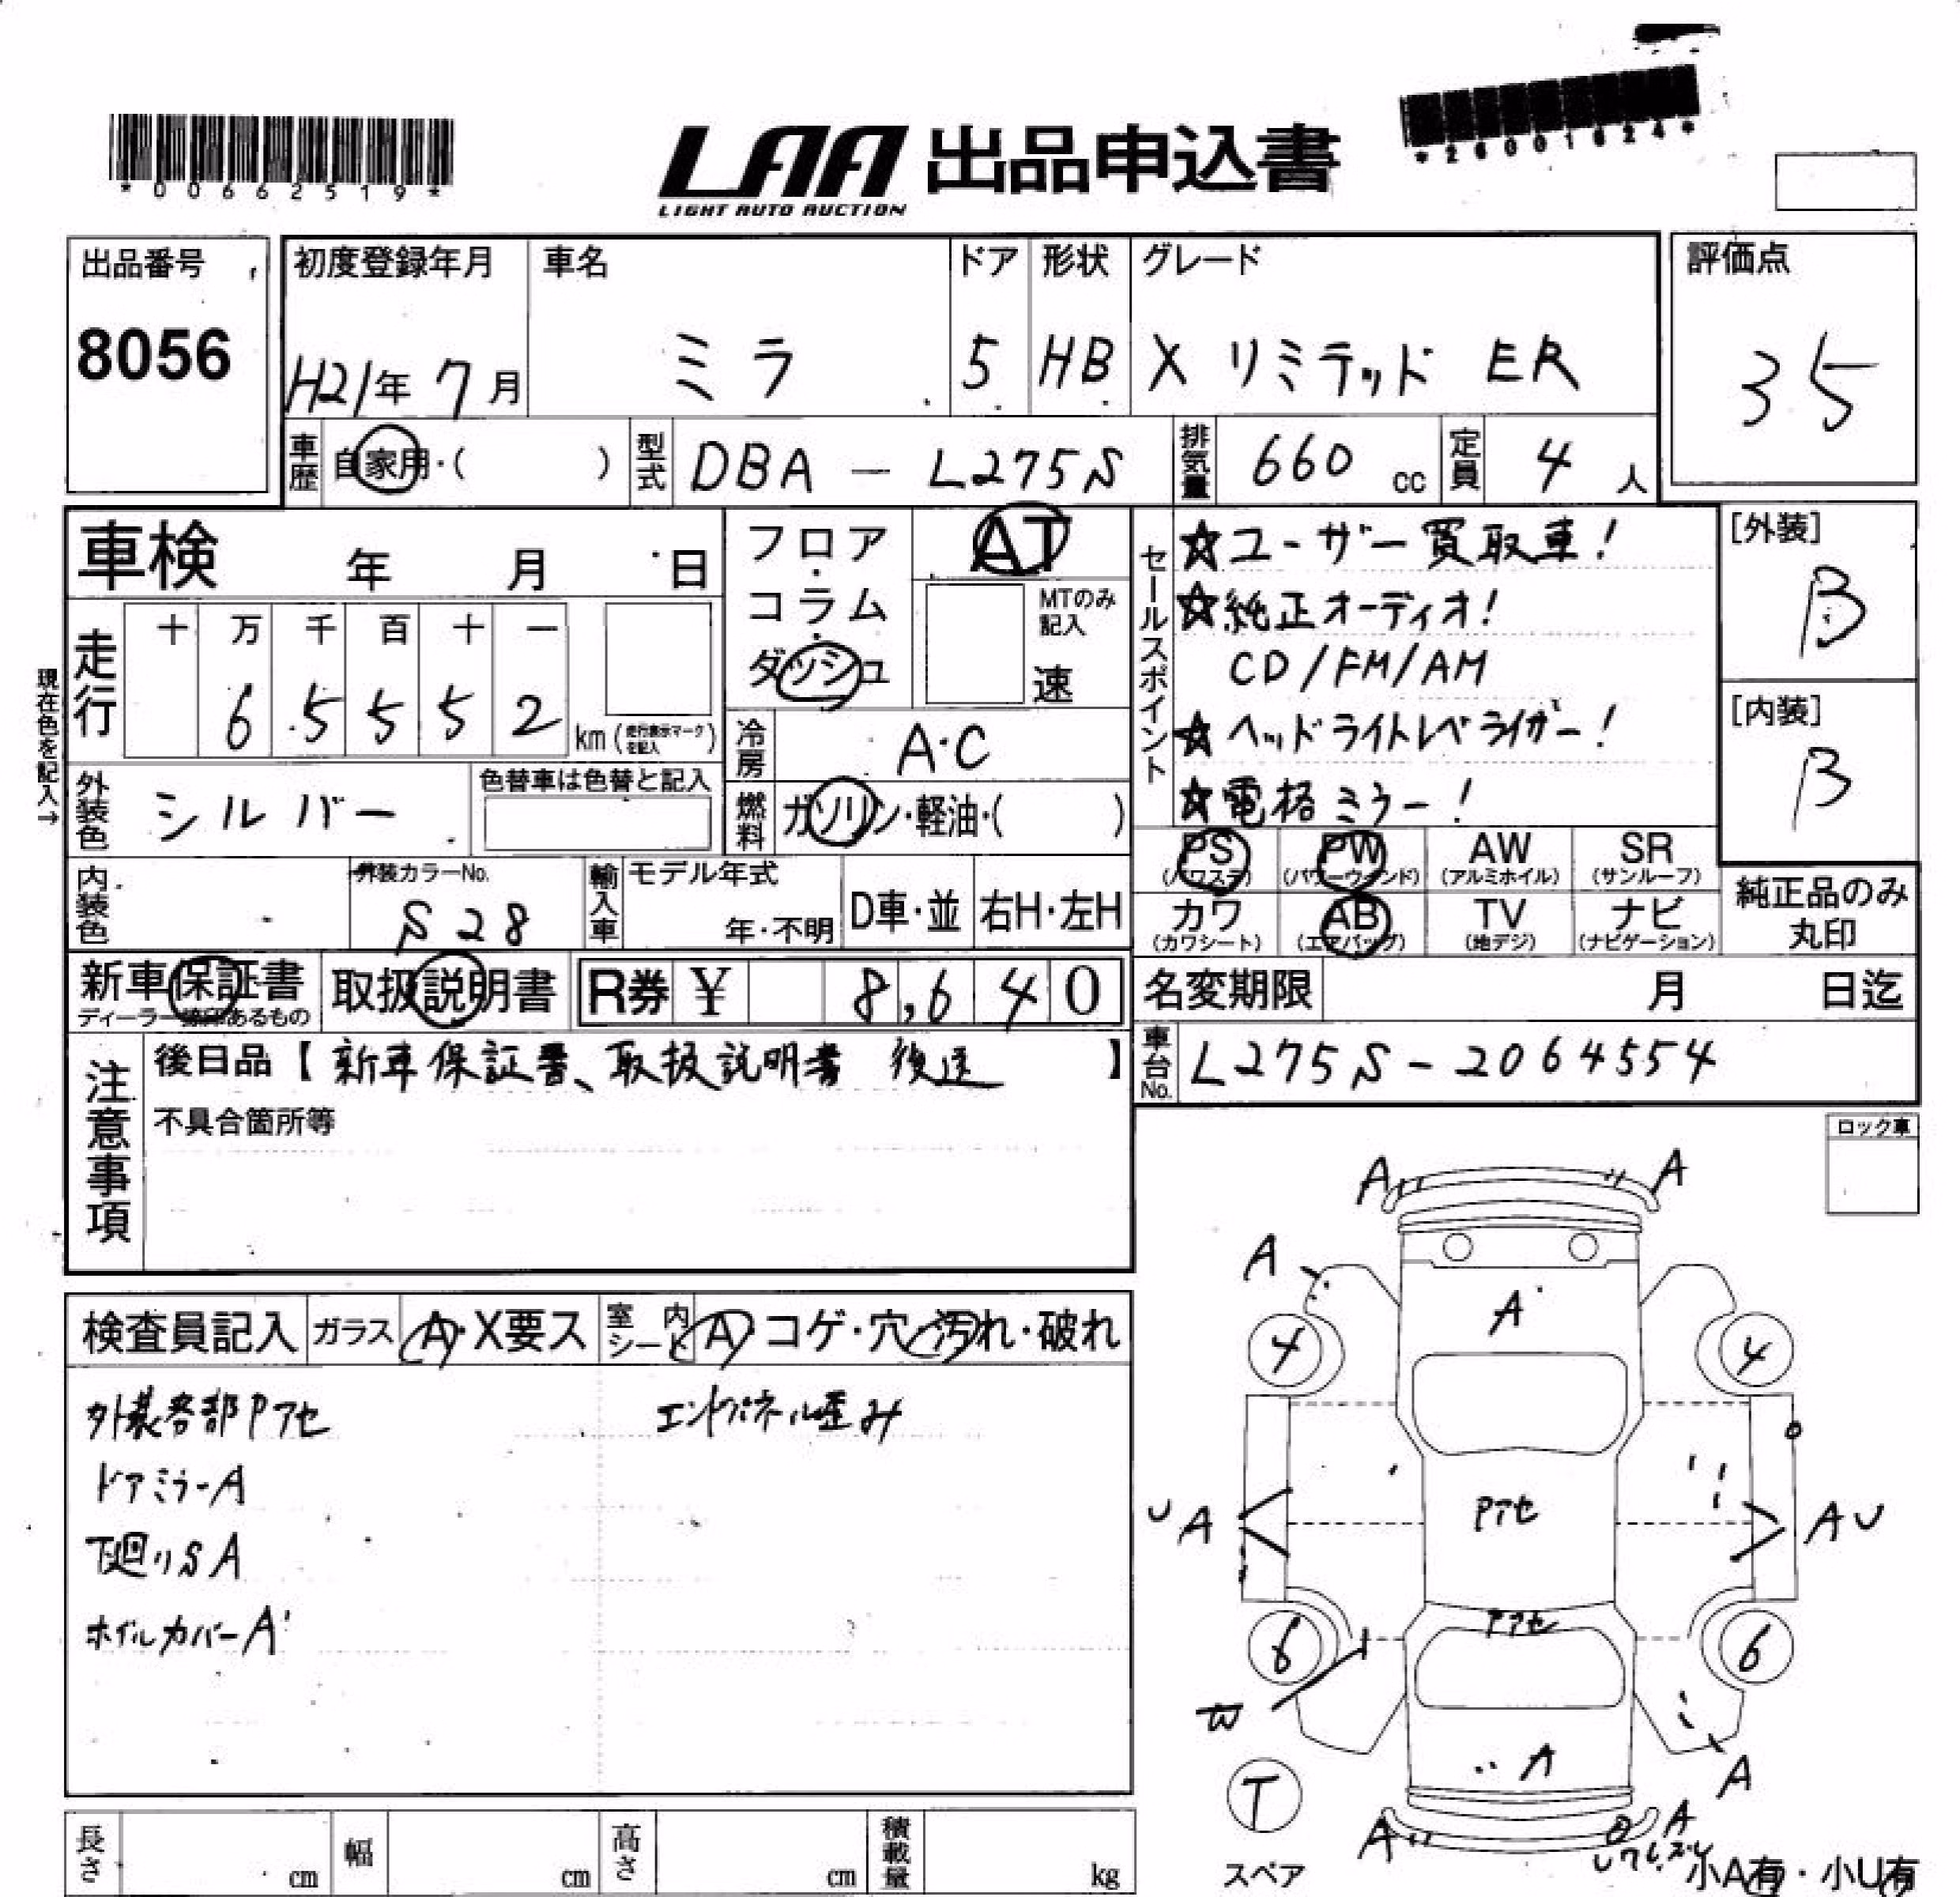 *00662519*
LAA 出品申込書
LIGHT AUTO AUCTION
*26001624*
出品番号
8056
初度登録年月
H21年 7月
車名
ミラ
ドア
5
形状
HB
グレード
X リミテッド ER
評価点
35
車歴
自家用・( )
型式
DBA - L275S
排気量
660 cc
定員
4 人
車検 年 月 日
フロア・コラム・ダッシュ
AT
MTのみ記入
速
セールスポイント
☆ユーザー買取車!
☆純正オーディオ!
CD/FM/AM
☆ヘッドライトレベライザー!
☆電格ミラー!
[外装]
B
[内装]
B
現在色を記入→
走行
十 万 千 百 十 一
6 5 5 5 2
km (走行表示マークを記入)
冷房
A・C
燃料
ガソリン・軽油・( )
外装色
シルバー
色替車は色替と記入
内装色
外装カラーNo.
S28
輸入車
モデル年式
年・不明
D車・並
右H・左H
PS
(パワステ)
PW
(パワーウィンド)
AW
(アルミホイル)
SR
(サンルーフ)
カワ
(カワシート)
AB
(エアバッグ)
TV
(地デジ)
ナビ
(ナビゲーション)
純正品のみ
丸印
新車保証書
ディーラー捺印あるもの
取扱説明書
R券 ¥ 8,640
名変期限 月 日迄
注意事項
後日品【 新車保証書、取扱説明書 後送 】
不具合箇所等
車台No.
L275S-2064554
ロック車
検査員記入
ガラス
A・X要ス
室内
シート
A・コゲ・穴・汚れ・破れ
外装各部Pアセ
エンドパネル歪み
ドアミラーA
下廻りSA
ホイルカバーA'
A A
A
A'
4 4
U A
Pアセ
A U
Pアセ
6 6
W
A
A
T
スペア
A
A
小A有・小U有
長さ cm
幅 cm
高さ cm
積載量 kg